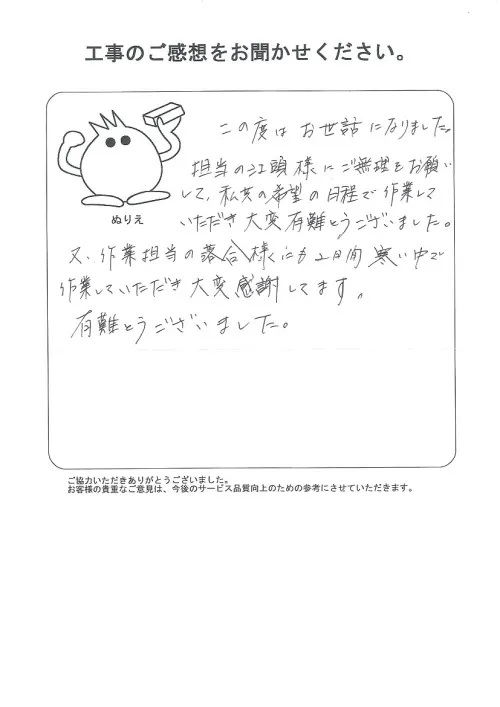 工事のご感想をお聞かせください。
この度は お世話になりました。
担当の江頭様にご無理をお願い
して、私共の希望の日程で作業して
いただき大変有難とうございました。
ぬりえ
又、作業担当の落合様にも2日間寒い中で
作業していただき大変感謝してます。
有難とうございました。
ご協力いただきありがとうございました。
お客様の貴重なご意見は、今後のサービス品質向上のための参考にさせていただきます。